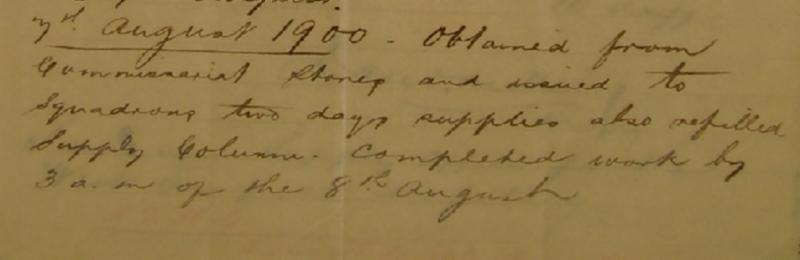 7th. August 1900 - Obtained from
Commissariat Stores and issued to
Squadrons two days supplies also refilled
Supply Column. Completed work by
3 a.m of the 8th August